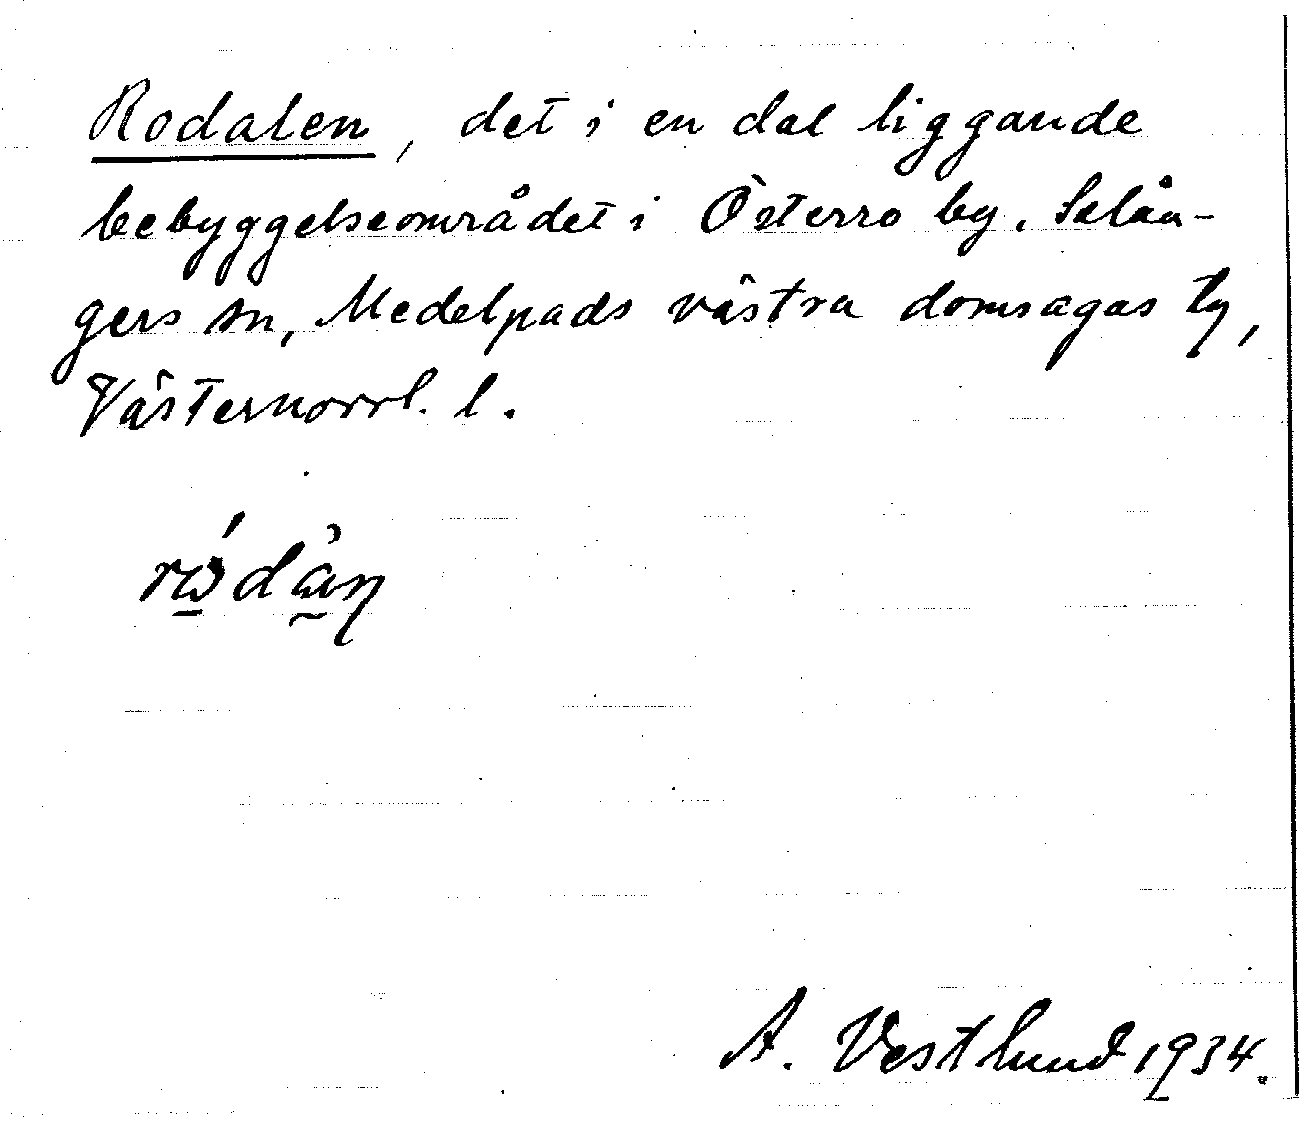 Rodalen, det i en dal liggande
bebyggelseområdet i Österro by, Selån-
gers sn, Medelpads västra domsagas tg,
Västernorrl. l.
A. Vestlund 1934.